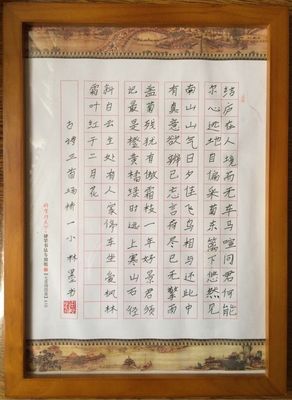 结庐在人境而无车马喧问君何能
尔心远地自偏采菊东篱下悠然见
南山山气日夕佳飞鸟相与还此中
有真意欲辨已忘言荷尽已无擎雨
盖菊残犹有傲霜枝一年好景君须
记最是橙黄橘绿时远上寒山石径
斜白云生处有人家停车坐爱枫林
霜叶红于二月花
古诗三首杨桥一小林墨书
硬笔书法专用纸